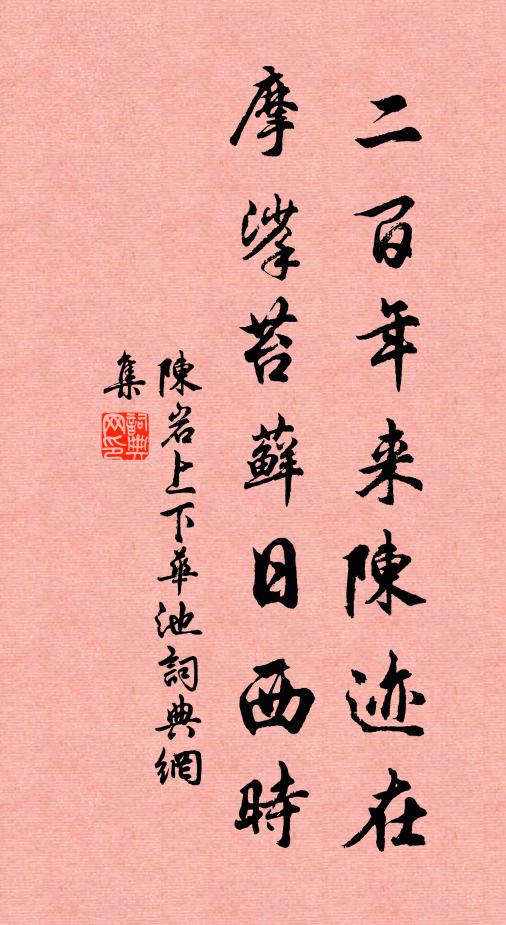 二百年来陳迹在
摩挲苔蘚日西時
陳岩上下華池詞典網
集
詞典
网印